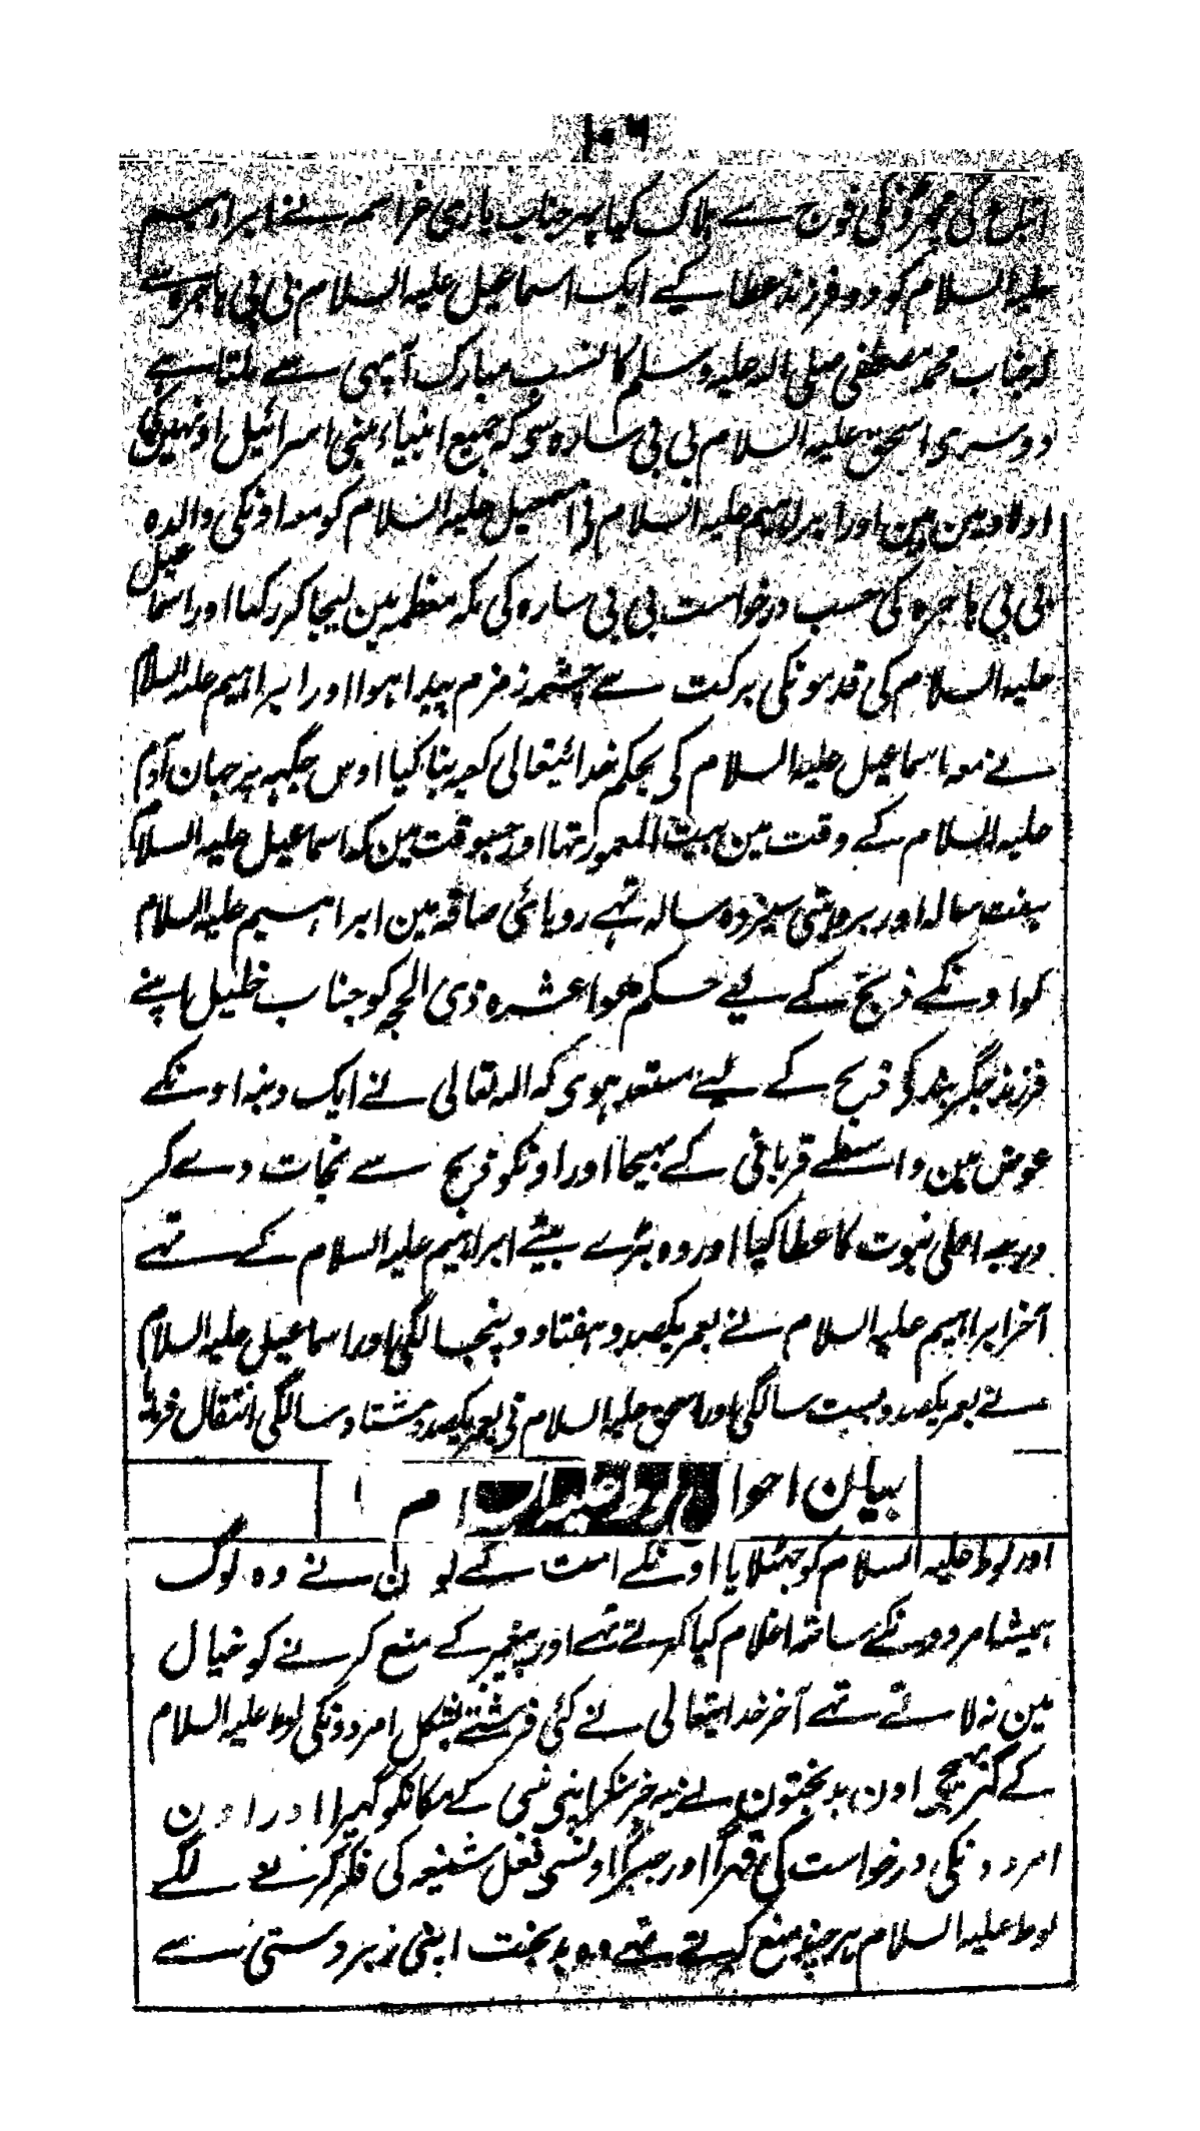 کی مچھرونکی فوج سے ہلاک کیا پہر جناب باری عز اسمہ نے ابراہیم
علیہ السلام کو دو فرزند عطا کیے ایک اسماعیل علیہ السلام بی بی ہاجرہ سے
کہ جناب محمد مصطفی صلی اللہ علیہ وسلم کا نسب مبارک آپہی سے ملتا ہے
دوسری اسحق علیہ السلام بی بی سارہ سو کہ جمیع انبیاء بنی اسرائیل اونہیں کی
اولاد مین ہین اور ابراہیم علیہ السلام نی اسمعیل علیہ السلام کو معہ اونکی والدہ
بی بی ہاجرہ کی حسب درخواست بی بی سارہ کی مکہ معظمہ مین لیجا کر رکہا اور اسماعیل
علیہ السلام کی قدمونکی برکت سے چشمہ زمزم پیدا ہوا اور ابراہیم علیہ السلام
نے معہ اسماعیل علیہ السلام کی بحکم خدائیتعالی کعبہ بنا کیا اوس جگہہ پر جہان آدم
علیہ السلام کے وقت مین بیت المعمور تہا اور جسوقت مین کہ اسماعیل علیہ السلام
ہفت سالہ اور بروایتی سیزدہ سالہ تہے رویائی صادقہ مین ابراہیم علیہ السلام
کو اونکے ذبح کے لیے حکم ہوا عشرہ ذی الحجہ کو جناب خلیل اپنے
فرزند جگربند کو ذبح کے لیے مستعد ہوی کہ اللہ تعالی نے ایک دنبہ اونکے
عوض مین واسطے قربانی کے بہیجا اور اونکو ذبح سے نجات دے کر
درجہ اعلی نبوت کا عطا کیا اور وہ بڑے بیٹے ابراہیم علیہ السلام کے تہے
آخر ابراہیم علیہ السلام نے بعمر یکصد و ہفتاد و پنجسالگی اور اسماعیل علیہ السلام
نے بعمر یکصد و بست سالگی اور اسحق علیہ السلام نی بعمر یکصد و ہشتاد سالگی انتقال فرمایا
بیان احوا
اور لوط علیہ السلام کو جہٹلایا اونکے امت کے نے وہ لوگ
ہمیشا امردونکے ساتھ اغلام کیا کرتے تہے اور پیغمبر کے منع کرنے کو خیال
مین نہ لاتے تہے آخر خدایتعالی نے کئی فرشتے بشکل امردونکی لوط علیہ السلام
کے گہر بہیجی اون بدبختون نے یہ خبر سنکر اپنی نبی کے مکانکو گہیرا اور اون
امردونکی درخواست کی قہراً اور جبراً اونسی فعل شنیعہ کی فکر کرنے لگے
لوط علیہ السلام ہر چند منع کرتے تہے وہ بدبخت اپنی زبردستی سے